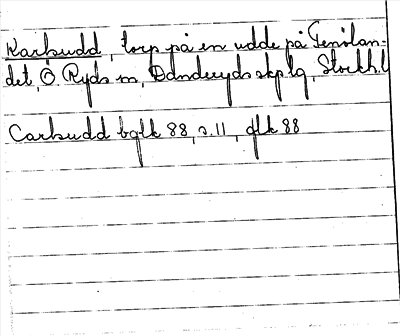 Karbudd, torp på en udde på Tenölan-
det, Ö. Ryds sn, Danderyds skplg, Stockh.l
Carbudd bglk 88, s. 11, glk 88